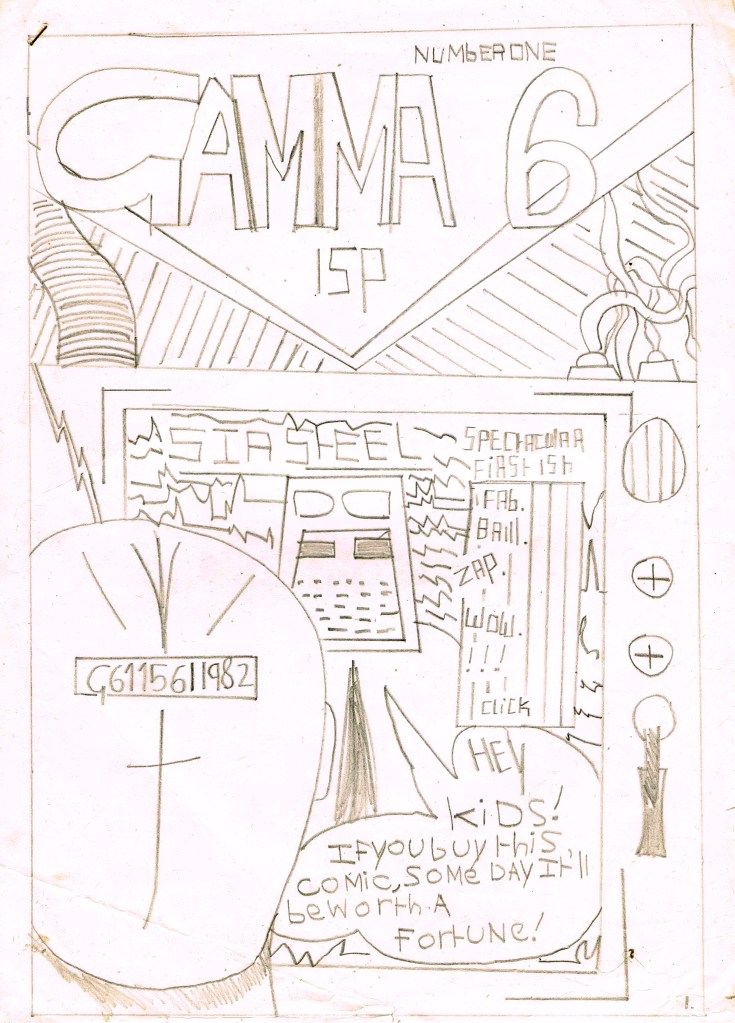 NUMBER ONE
GAMMA 6
15P
SIA STEEL
SPECTACULAR
FIRST ISH
FAB.
BAM.
ZAP.
WOW.
!!!
CLICK
G6115611982
HEY
KIDS!
If you buy this
comic, some day It'll
be worth A
fortune!
1.